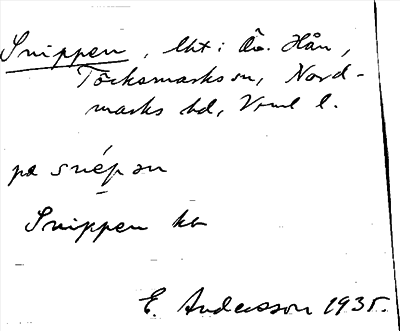 Snippen, lht i Ö. Hån,
Töcksmarks sn, Nord-
marks hd, Vrml l.
på snépən
Snippen ka
E. Andersson 1935.